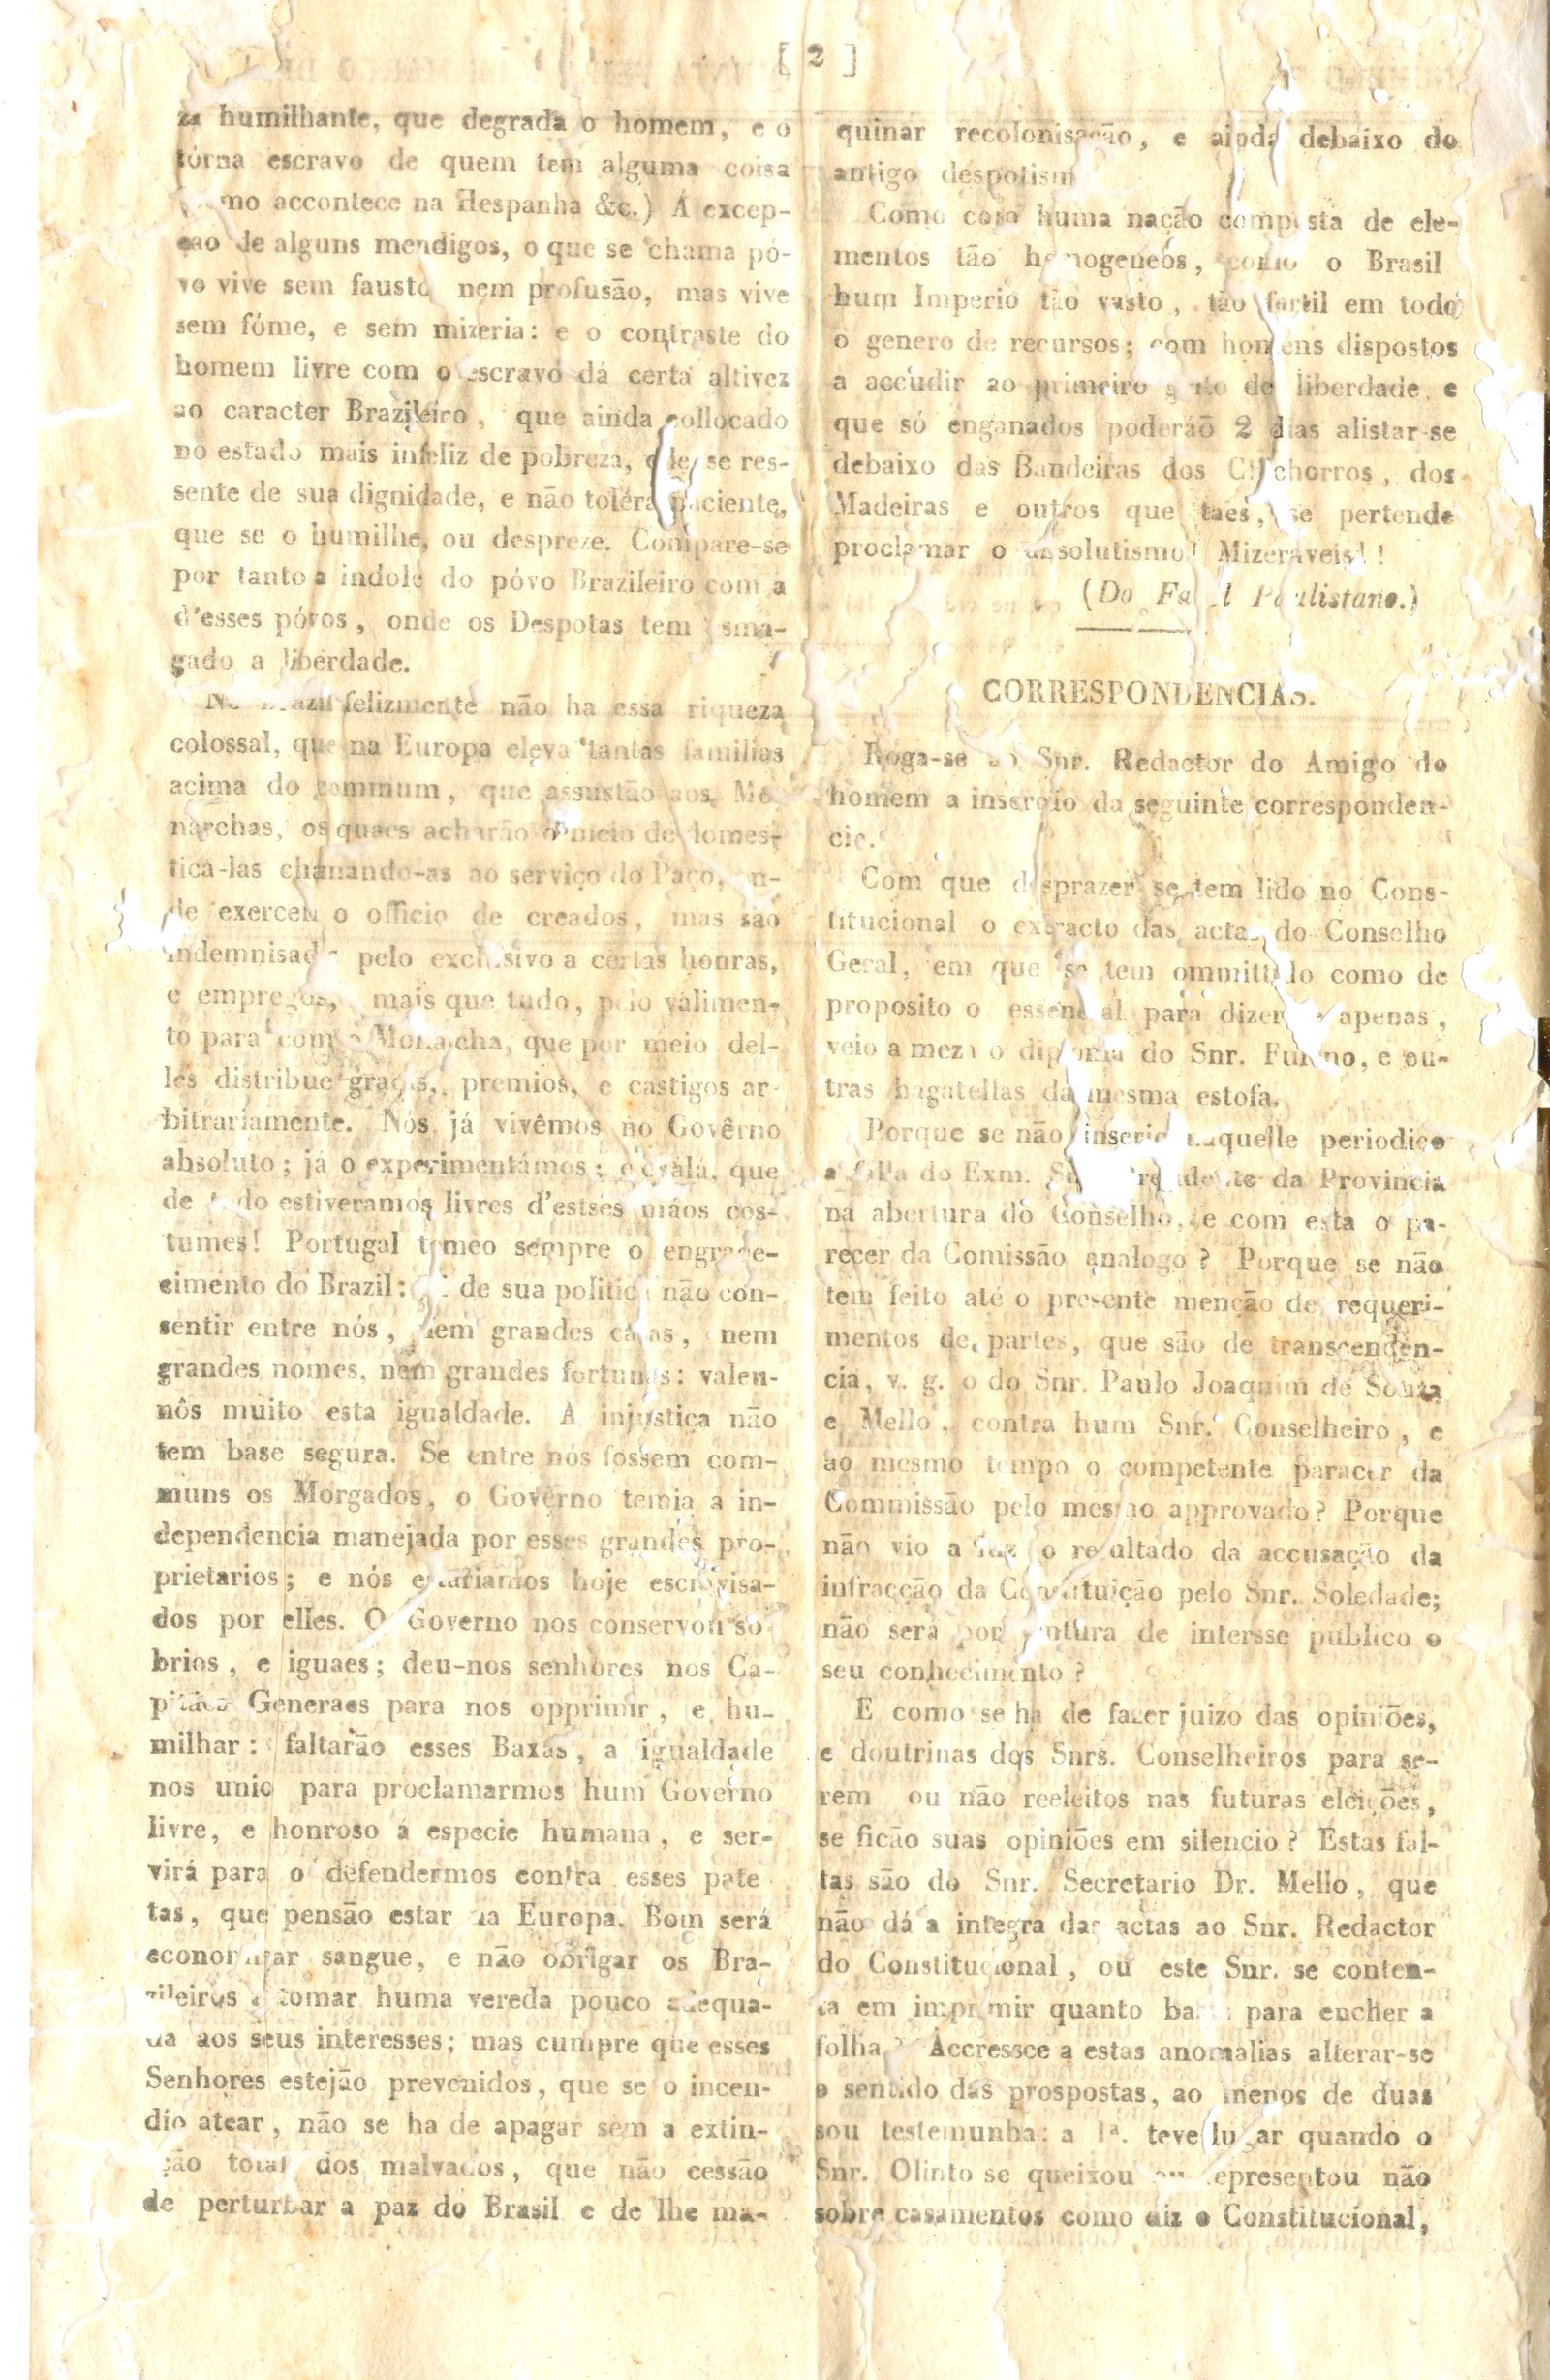 [ 2 ]
za humilhante, que degrada o homem, e o
tórna escravo de quem tem alguma coisa
mo accontece na Hespanha &c.) Á excep-
ção de alguns mendigos, o que se chama pó-
vo vive sem fausto nem profusão, mas vive
sem fóme, e sem mizeria: e o contraste do
homem livre com o escravo dá certa altivez
ao caracter Brazileiro, que ainda collocado
no estado mais infeliz de pobreza, elle se res-
sente de sua dignidade, e não toléra paciente,
que se o humilhe, ou despreze. Compare-se
por tanto a indole do póvo Brazileiro com a
d'esses póvos, onde os Despotas tem esma-
gado a liberdade.
No Brazil felizmente não ha essa riqueza
colossal, que na Europa eleva tantas familias
acima do commum, que assustão aos Mo-
narchas, os quaes acharão o meio de domes-
tica-las chamando-as ao serviço do Paço, on-
de exercem o officio de creados, mas são
indemnisadas pelo exclusivo a certas honras,
e empregos, mais que tudo, pelo valimen-
to para com o Monarcha, que por meio del-
les distribue graças, premios, e castigos ar-
bitrariamente. Nós já vivêmos no Govêrno
absoluto; já o experimentámos; oxalá, que
de todo estiveramos livres d'estses máos cos-
tumes! Portugal temeo sempre o engrade-
cimento do Brazil: de sua politica não con-
sentir entre nós, nem grandes casas, nem
grandes nomes, nem grandes fortunas: valeu-
nôs muito esta igualdade. A injustiça não
tem base segura. Se entre nós fossem com-
muns os Morgados, o Govêrno temia a in-
dependencia manejada por esses grandes pro-
prietarios; e nós estariamos hoje escravisa-
dos por elles. O Governo nos conservou so-
brios, e iguaes; deu-nos senhores nos Ca-
pitães Generaes para nos opprimir, e hu-
milhar: faltarão esses Baxás, a igualdade
nos unio para proclamarmos hum Governo
livre, e honroso á especie humana, e ser-
virá para o defendermos contra esses pate-
tas, que pensão estar na Europa. Bom será
economisar sangue, e não obrigar os Bra-
zileiros a tomar huma vereda pouco adequa-
da aos seus interesses; mas cumpre que esses
Senhores estejão prevenidos, que se o incen-
dio atear, não se ha de apagar sem a extin-
ção total dos malvados, que não cessão
de perturbar a paz do Brasil e de lhe ma-
quinar recolonisação, e ainda debaixo do
antigo despotism
Como com huma nação composta de ele-
mentos tão homogeneos, como o Brasil
hum Imperio tão vasto, tão fertil em todo
o genero de recursos; com homens dispostos
a accudir ao primeiro grito de liberdade, e
que só enganados poderáõ 2 dias alistar-se
debaixo das Bandeiras dos Cachorros, dos
Madeiras e outros que taes, se pertende
proclamar o absolutismo! Mizeraveis!!
(Do Farol Paulistano.)
CORRESPONDENCIAS.
Roga-se ao Snr. Redactor do Amigo do
homem a inserção da seguinte corresponden-
cia.
Com que desprazer se tem lido no Cons-
titucional o extracto das actas do Conselho
Geral, em que se tem ommittido como de
proposito o essencial para dizer apenas,
veio a meza o diploma do Snr. Furno, e ou-
tras bagatellas da mesma estofa.
Porque se não inserio naquelle periodico
a falla do Exm. Snr. Presidente da Provincia
na abertura do Conselho, e com esta o pa-
recer da Comissão analogo? Porque se não
tem feito até o presente menção de requeri-
mentos de partes, que são de transcenden-
cia, v. g. o do Snr. Paulo Joaquim de Souza
e Mello, contra hum Snr. Conselheiro, e
ao mesmo tempo o competente paracer da
Commissão pelo mesmo approvado? Porque
não vio a luz o resultado da accusação da
infracção da Constituição pelo Snr. Soledade;
não será por ventura de intersse publico o
seu conhecimento?
E como se ha de fazer juizo das opiniões,
e doutrinas dos Snrs. Conselheiros para se-
rem ou não reeleitos nas futuras eleições,
se ficão suas opiniões em silencio? Estas fal-
tas são do Snr. Secretario Dr. Mello, que
não dá a integra das actas ao Snr. Redactor
do Constitucional, ou este Snr. se conten-
ta em imprimir quanto basta para encher a
folha? Accressce a estas anomalias alterar-se
o sentido das prospostas, ao menos de duas
sou testemunha: a 1ª. teve lugar quando o
Snr. Olinto se queixou ou representou não
sobre casamentos como diz o Constitucional,